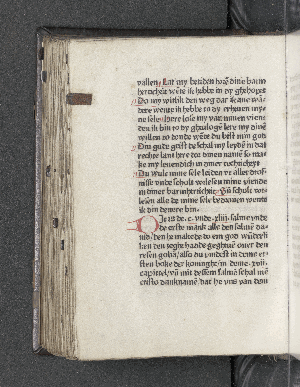 vallen Lat my beiden hoͤrē dine barm
herticheit wēte ik hebbe in dy ghehopet
Do my witlik den weg dar ik ane wā
dere wente ik hebbe to dy erheuen my
ne sele Here lose my van minen vien
den ik bin to dy ghulogē lere my dinē
willen to donde wēte du bist min god
Din gude geist de schal my leydē in dat
rechte lant here dor dinen namē so ma
ke my leuendich in diner rechticheyt
Du schalt mine sele leiden vt aller drof
nisse vnde scholt vorlesen mine viende
in diner barmherticheit Vn̄ scholt vor
lesen alle de mine sele bedrouen wente
ik din denere bin
It is de .c. vnde .xliij. salme vnde
de erste mank alle den salmē da
uid den he makede to ein god wūderli
ken den seghe hadde geghuen ouer den
resen golia also du vindest in deme er
sten boke der koninghe in deme .xvij.
capittel vn̄ mit dessem salmē schal mē
cristo dankname dat he vns van dem